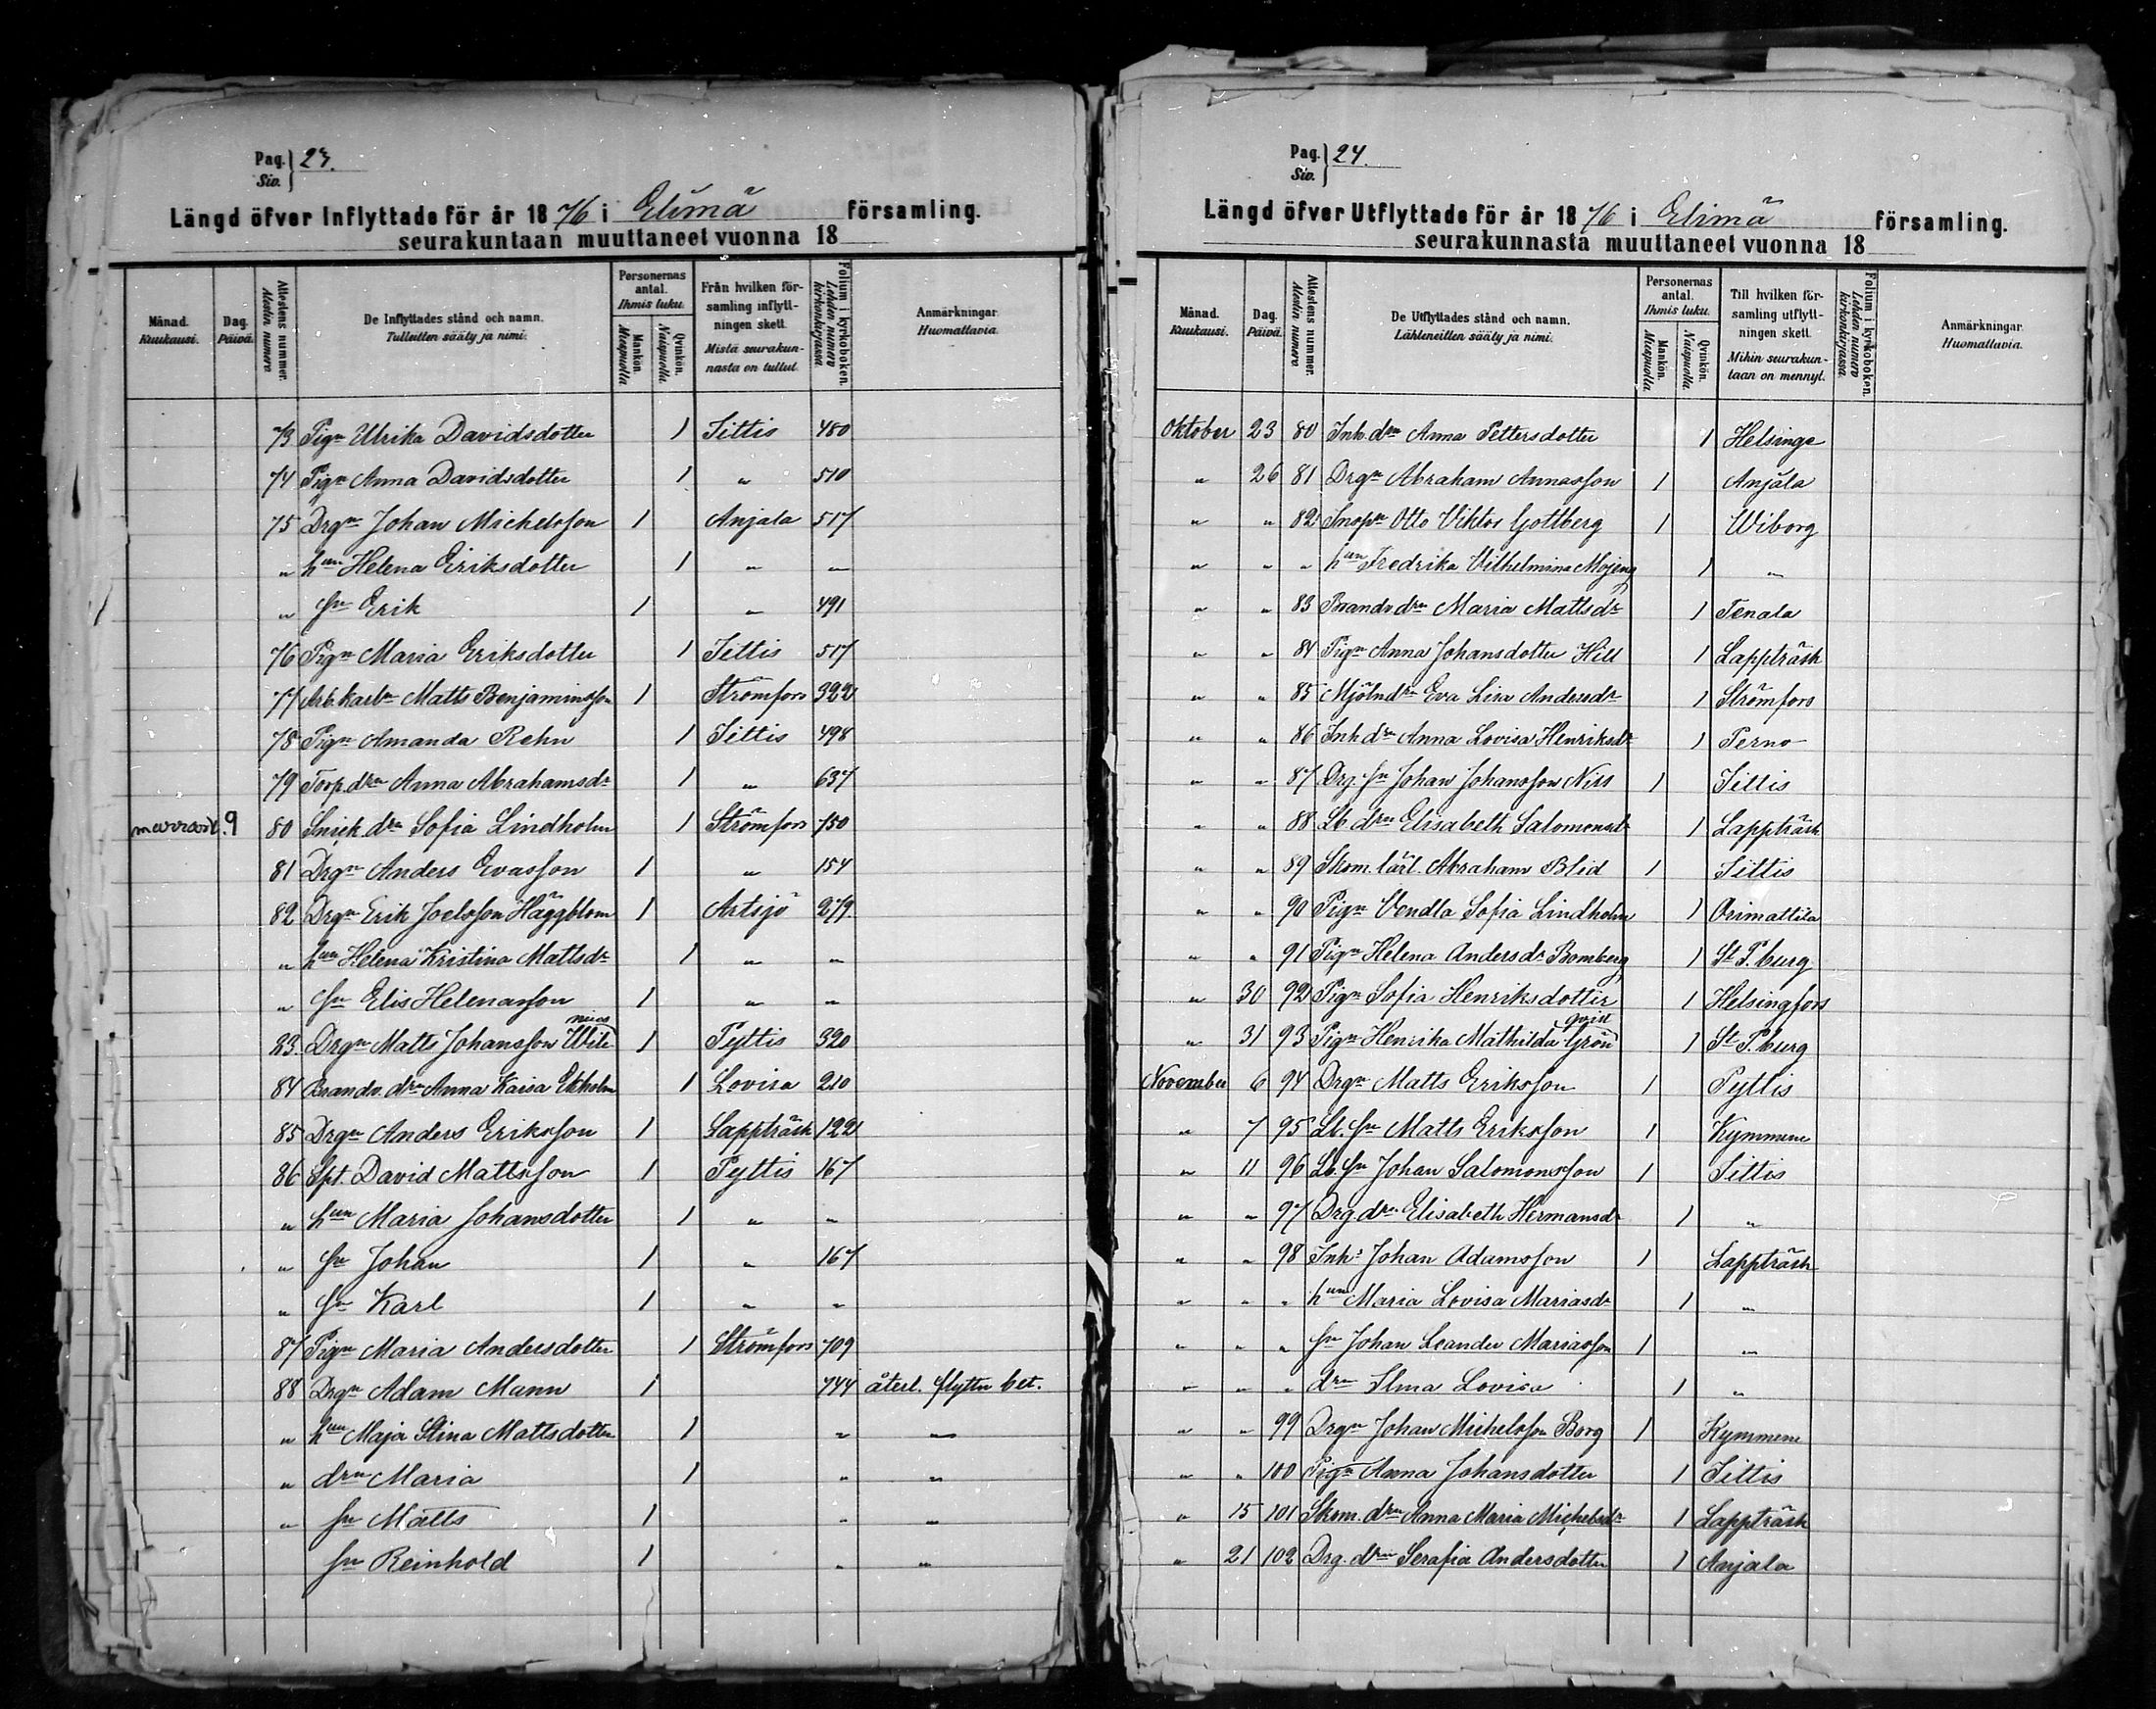 Pag. Siv. } 23.
Längd öfver Inflyttade för år 1876 i Elimä församling.
seurakuntaan muuttaneet vuonna 18
Månad. Kuukausi. | Dag. Päivä. | Attestens nummer. Atestin numero | De Inflyttades stånd och namn. Tulleitten sääty ja nimi. | Personernas antal. Ihmis luku. Mankön. Miespuolia Qvinkön. Naispuolia. | Från hvilken församling inflyttningen skett. Mistä seurakunnasta on tullut. | Folium i kyrkoboken. Lehden numero kirkonkirjassa | Anmärkningar. Huomattavia.
73 Pign Ulrika Davidsdotter 1 Iittis 480
74 Pign Anna Davidsdotter 1 " 510
75 Drgn Johan Michelsson 1 Anjala 517
" hun Helena Eriksdotter 1 " "
" sn Erik 1 " 491
76 Pign Maria Eriksdotter 1 Iittis 517
77 Arb.karln Matts Benjaminsson 1 Strömfors 322
78 Pign Amanda Rehn 1 Iittis 498
79 Torp.drn Anna Abrahamsdr 1 " 637
9 80 Snick. drn Sofia Lindholm 1 Strömfors 150
81 Drgn Anders Evasson 1 " 154
82 Drgn Erik Joelsson Häggblom 1 Artsjö 279
" hun Helena Kristina Mattsdr 1 " "
" sn Elis Helenasson 1 " "
83 Drgn Matts Johansson 1 Pyttis 320
84 Brandv. drn Anna Kaisa Ekholm 1 Lovisa 210
85 Drgn Anders Eriksson 1 Lappträsk 122
86 Spt. David Mattsson 1 Pyttis 167
" hun Maria Johansdotter 1 " "
" sn Johan 1 " 167
" sn Karl 1 " "
87 Pign Maria Andersdotter 1 Strömfors 709
88 Drgn Adam Mann 1 744 återl. flyttn bet.
" hun Maja Stina Mattsdotter 1 " "
" drn Maria 1 " "
" sn Matts 1 " "
sn Reinhold 1 " "
Pag. Siv. } 24.
Längd öfver Utflyttade för år 1876 i Elimä församling.
seurakunnasta muuttaneet vuonna 18
Månad. Kuukausi. | Dag. Päivä. | Attestens nummer. Atestin numero | De Utflyttades stånd och namn. Lähteneitten sääty ja nimi. | Personernas antal. Ihmis luku. Mankön. Miespuolia. Qvinkön. Naispuolia. | Till hvilken församling utflyttningen skett. Mihin seurakuntaan on mennyt. | Folium i kyrkoboken. Lehden numero kirkonkirjassa. | Anmärkningar. Huomattavia.
Oktober 23 80 Inh.drn Anna Pettersdotter 1 Helsinge
" 26 81 Drgn Abraham Annasson 1 Anjala
" " 82 Inspn Otto Viktor Gottberg 1 Wiborg
" " " hun Fredrika Vilhelmina 1 "
" " 83 Brandv.drn Maria Mattsdr 1 Tenala
" " 84 Pign Anna Johansdotter Hill 1 Lappträsk
" " 85 Mjöln.drn Eva Lisa Andersdr 1 Strömfors
" " 86 Inh.drn Anna Lovisa Henriksdr 1 Perno
" " 87 Drg. sn Johan Johansson Niss 1 Iittis
" " 88 Lb. drn Elisabeth Salomonsdr 1 Lappträsk
" " 89 Skom. lärl. Abraham Blid 1 Iittis
" " 90 Pign Vendla Sofia Lindholm 1 Orimattila
" " 91 Pign Helena Andersdr Bomberg 1 St P.burg
" 30 92 Pign Sofia Henriksdotter 1 Helsingfors
" 31 93 Pign Henrika Mathilda Grönqvist 1 St P.burg
November 6 94 Drgn Matts Eriksson 1 Pyttis
" 7 95 Lb. sn Matts Eriksson 1 Kymmene
" 11 96 Lb. sn Johan Salomonsson 1 Iittis
" " 97 Drg.drn Elisabeth Hermansdr 1 "
" " 98 Inhs Johan Adamsson 1 Lappträsk
" " " hun Maria Lovisa Mariasdr 1 "
" " " sn Johan Leander Mariasson 1 "
" " " drn Ilma Lovisa 1 "
" " 99 Drgn Johan Michelsson Borg 1 Kymmene
" " 100 Pign Anna Johansdotter 1 Iittis
" 15 101 Skom. drn Anna Maria Michelsdr 1 Lappträsk
" 21 102 Drg. drn Serafia Andersdotter 1 Anjala